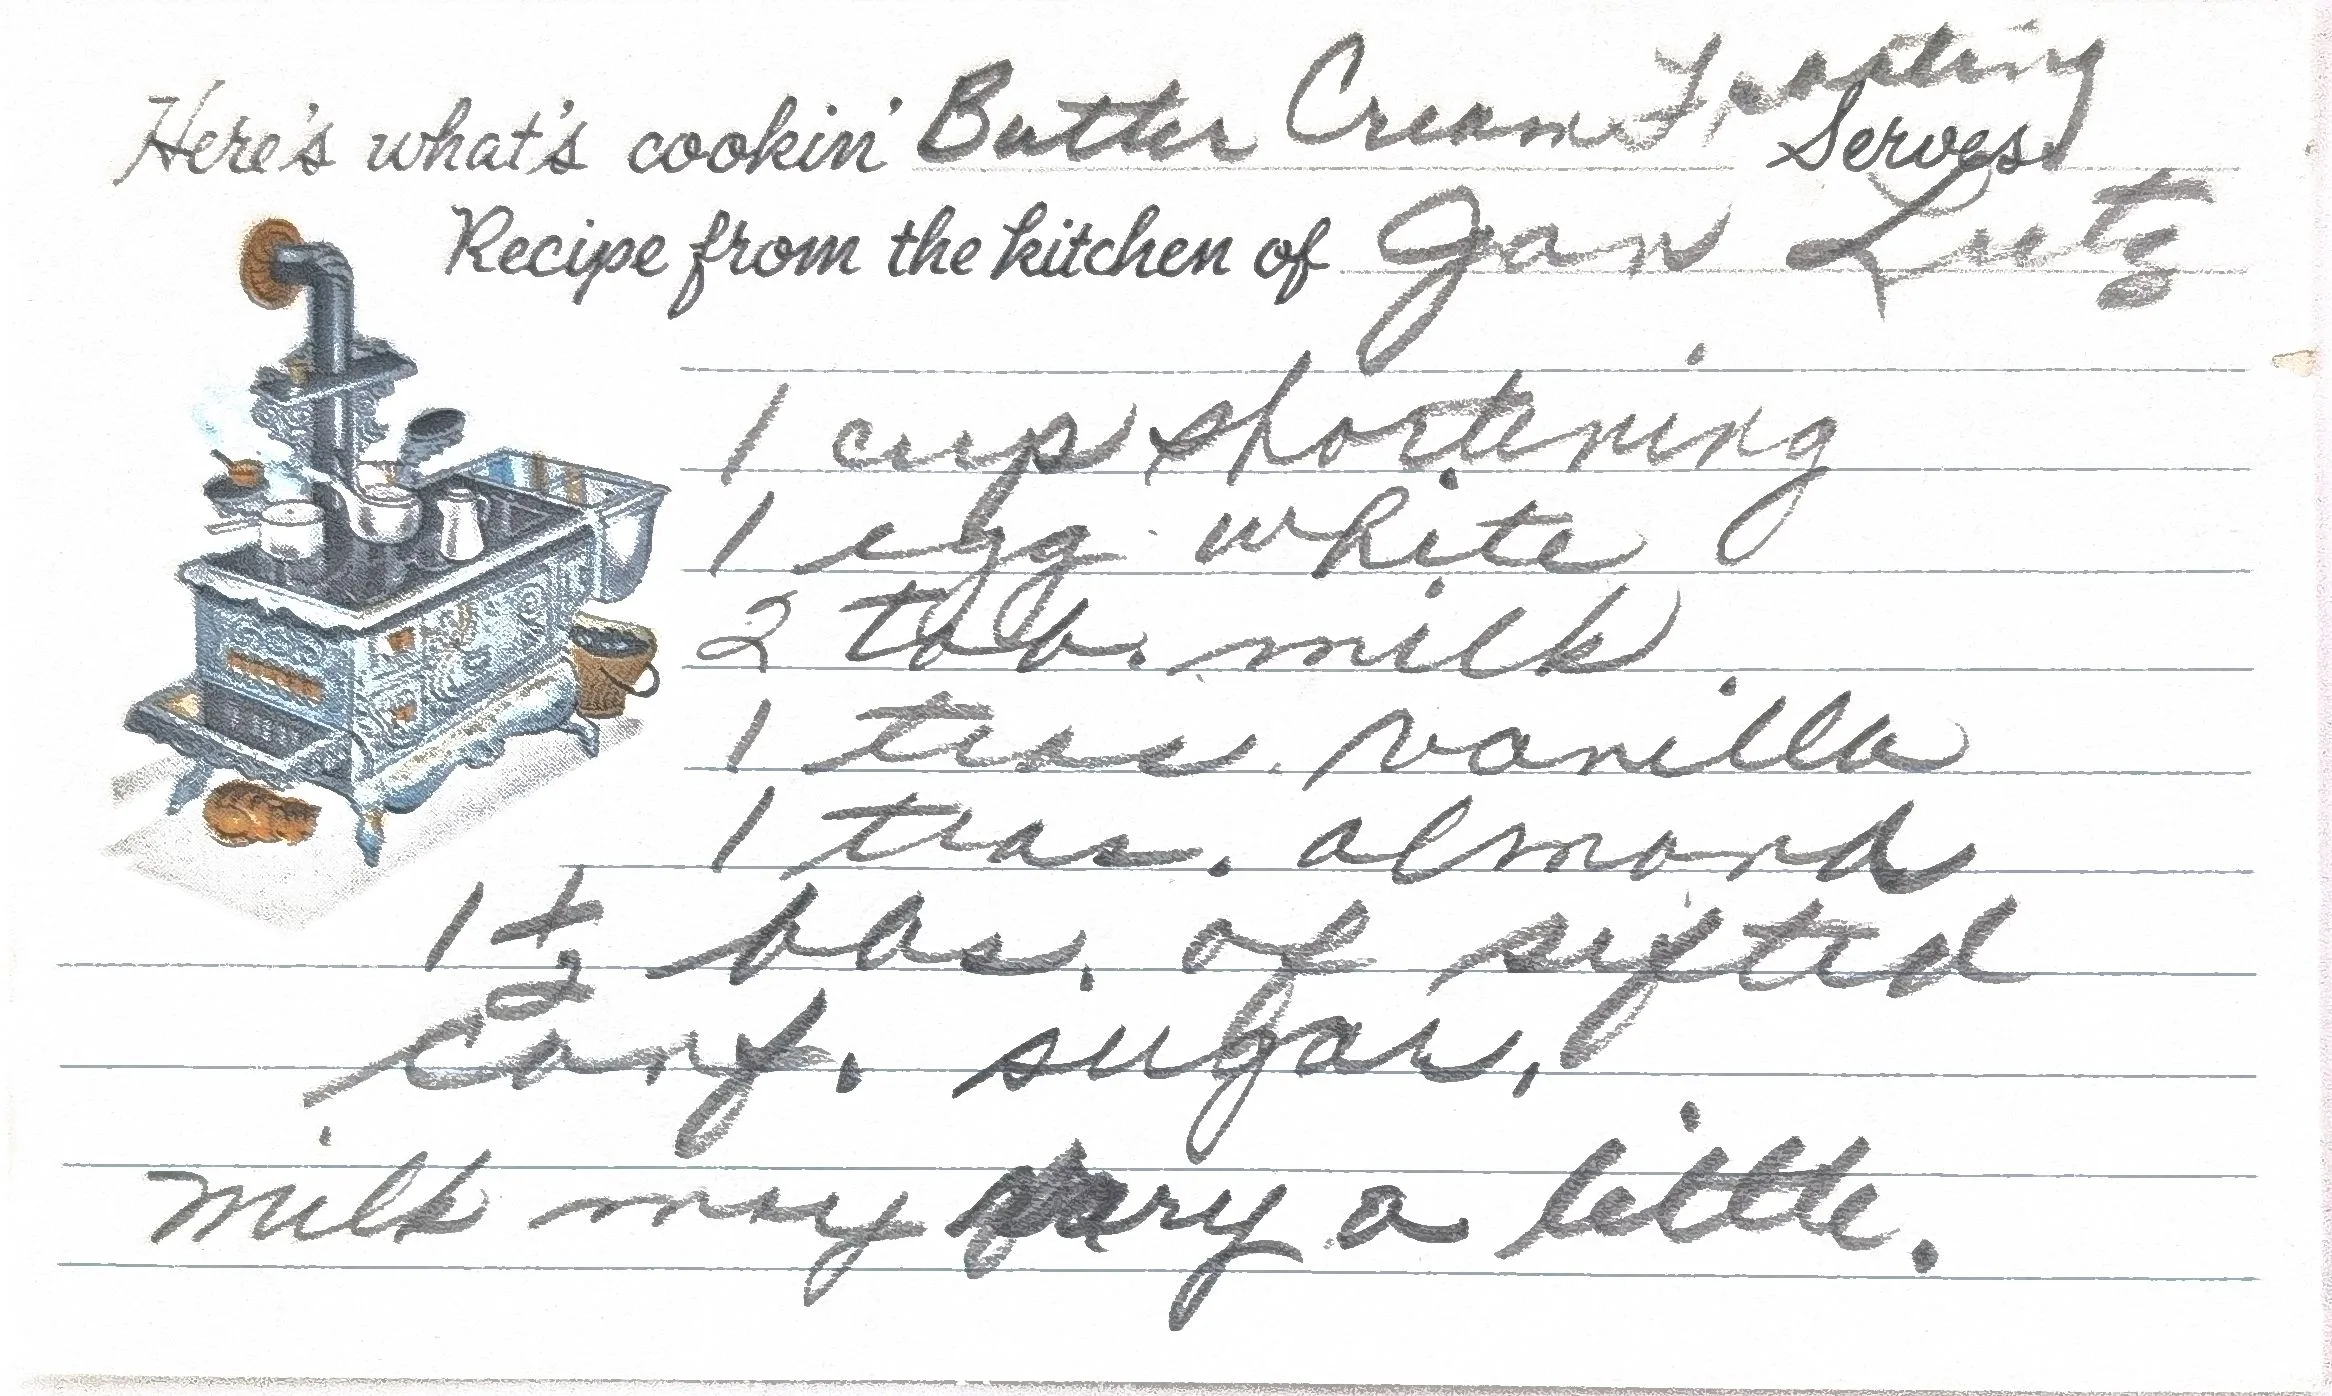 Here's what's cookin' Butter Cream Frosting Serves
Recipe from the kitchen of Jan Lutz
1 cup shortening
1 egg white
2 tbb. milk
1 teas. vanilla
1 teas. almond
1 1/2 bbs. of sifted
Conf. sugar.
milk may vary a little.